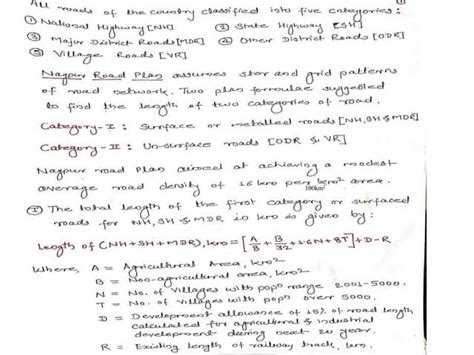 ①
All roads of the country classified into five categories:
① National Highway [NH] ② State Highway [SH]
③ Major District Roads [MDR] ④ Other District Roads [ODR]
⑤ Village Roads [VR]
Nagpur Road Plan assumes star and grid patterns
of road network. Two plan formulae suggested
to find the length of two categories of road.
Category-I: Surface or metalled roads [NH, SH & MDR]
Category-II: Un-surface roads [ODR & VR]
Nagpur road plan aimed at achieving a modest
average road density of 16 km per km² area.
100km²
① The total length of the first category or surfaced
roads for NH, SH & MDR in km is given by:
Length of (NH+SH+MDR), km = [A/8 + B/32 + 1.6N + 8T] + D - R
Where, A = Agricultural Area, km²
B = Non-agricultural area, km²
N = No. of Villages with popn range 2001-5000.
T = No. of Villages with popn over 5000.
D = Development allowance of 15% of road length
calculated for agricultural & industrial
development during next 20 year.
R = Existing length of railway track, km.